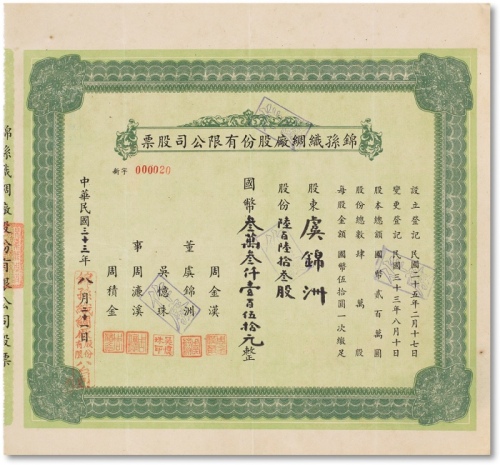 票股司公限有份股廠綢織孫錦
新字 000020
設立登記 民國二十五年二月十七日
變更登記 民國三十三年八月十日
股本總額 國幣貳百萬圓
股份總數 肆萬股
每股金額 國幣伍拾圓一次繳足
股東 虞錦洲
股份 陸百陸拾叁股
國幣 叁萬叁仟壹百伍拾元整
董事
周金漢
虞錦洲
吳憶珠
周濂溪
周積金
中華民國三十三年八月二十一日
錦孫織綢廠股份有限公司股票